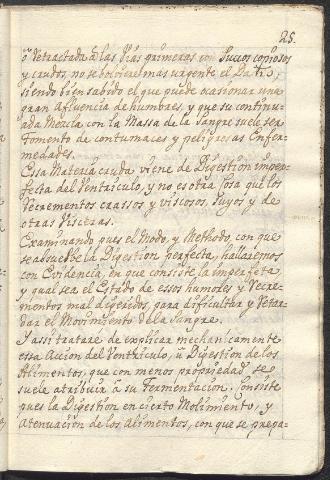 25.
ò Retractada à las Vias primeras con Succos copiosos
y crudos, no se bolviere mas urgente el Daño,
siendo bien sabido el que puede ocasionar una
gran afluencia de humores, y que su continu-
ada Mezcla con la Massa de la Sangre suele ser
Fomento de contumaces y peligrosas Enfer-
medades.
Essa Materia cruda viene de Digestion imper-
fecta del Ventriculo, y no es otra Cosa que los
Recrementos crassos y viscosos, suyos y de
otras Visceras.
Examinando pues el Modo, y Methodo, con que
se absuelbe la Digestion perfecta, hallaremos
con Evidencia, en que consiste la imperfeta
y qual sea el Estado de essos humores y Recre-
mentos mal digeridos, para difficultar y Retar-
dar el Movimiento de la Sangre.
I assi tratare de explicar mechanicamente
essa Accion del Ventriculo, ù Digestion de los
Alimentos, que con menos propriedad se
suele atribuir à su Fermentacion. Consiste
pues la Digestion en cierto Molimiento, y
atenuacion de los Alimentos, con que se prepa-